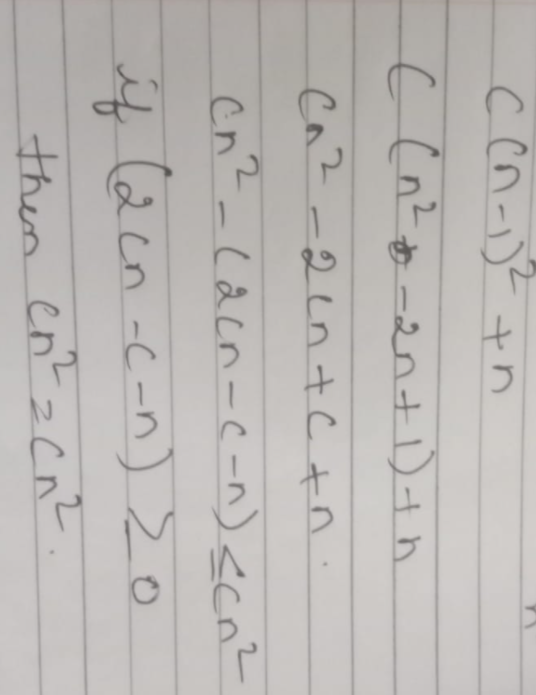 C(n-1)² + n
C(n² - 2n + 1) + n
Cn² - 2Cn + C + n.
Cn² - (2Cn - C - n) ≤ Cn²
if (2Cn - C - n) ≥ 0
then Cn² = Cn².